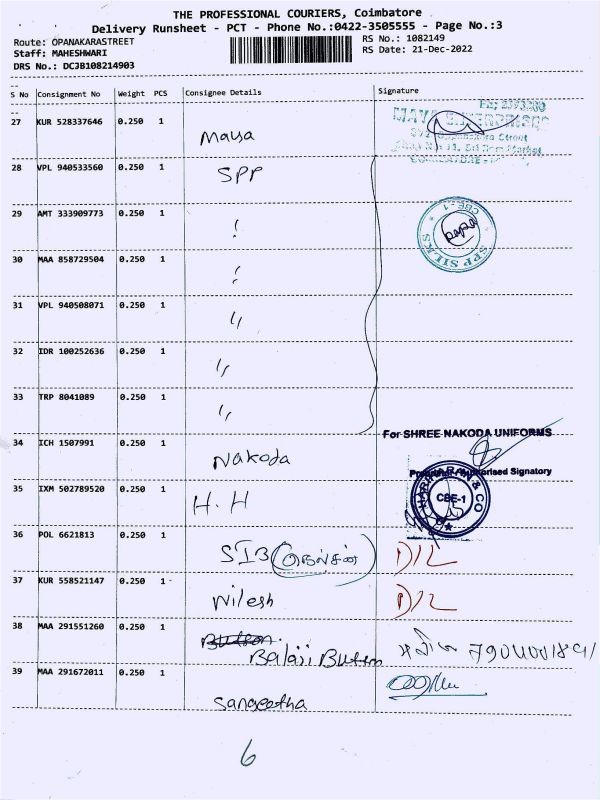 THE PROFESSIONAL COURIERS, Coimbatore
Delivery Runsheet - PCT - Phone No.:0422-3505555 - Page No.:3
Route: OPANAKARASTREET
Staff: MAHESHWARI
DRS No.: DCJB108214903
RS No.: 1082149
RS Date: 21-Dec-2022
S No Consignment No Weight PCS Consignee Details Signature
27 KUR 528337646 0.250 1 Maya
28 VPL 940533560 0.250 1 SPP
29 AMT 333909773 0.250 1
30 MAA 858729504 0.250 1
31 VPL 940508071 0.250 1 "
32 IDR 100252636 0.250 1 "
33 TRP 8041089 0.250 1 "
SPP SILKS
CBE-1
For SHREE NAKODA UNIFORMS
34 ICH 1507991 0.250 1 Nakoda
Authorised Signatory
35 IXM 502789520 0.250 1 H.H
& CO
CBE-1
36 POL 6621813 0.250 1 SIB D/L
37 KUR 558521147 0.250 1 Nilesh D/L
38 MAA 291551260 0.250 1 Button
Balaji Button
39 MAA 291672011 0.250 1 Sangeetha
6